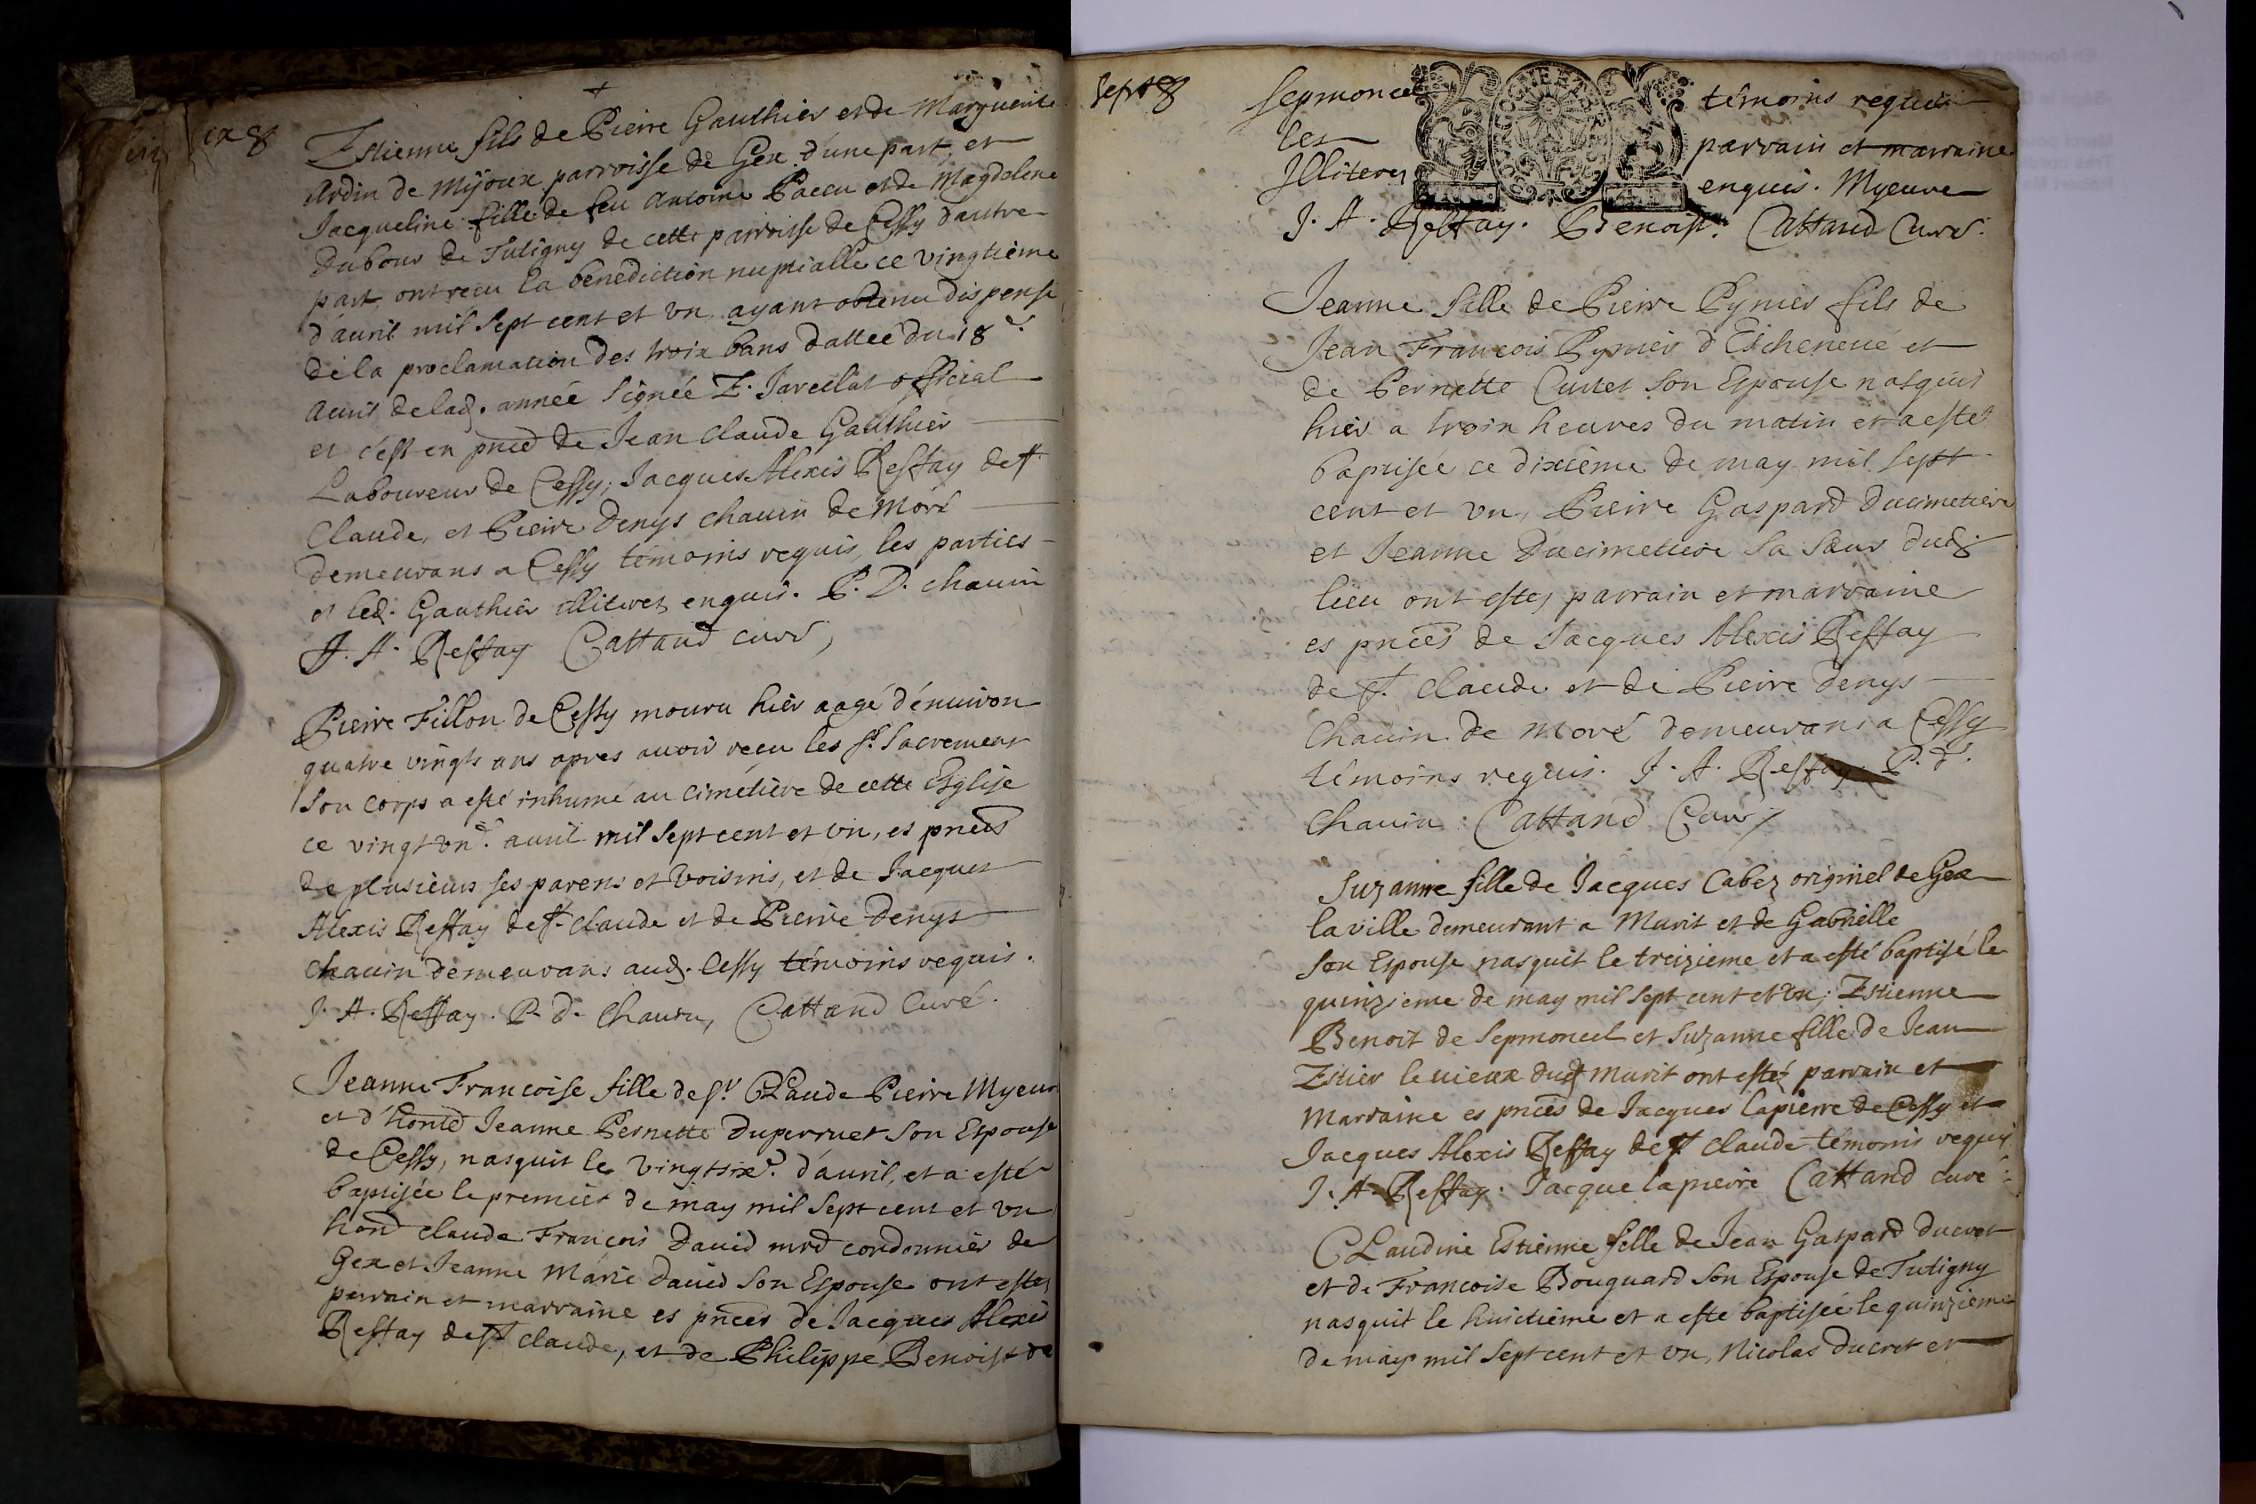 Estienne fils de Pierre Gauthier et de Marguerite
Ardin de Mijoux parroisse de Gex d'une part, et
Jacqueline fille de feu Antoine Paccu et de Magdelene
Dubous de Tutigny de cette parroisse de Cessy d'autre
part ont receu la benediction nuptialle ce vingtiéme
d'auril mil sept cent et vn, ayant obtenu dispense
de la proclamation des trois bans dattée du 18e.
auril de lad. année signée E. Jarcellat official
et c'est en pñce de Jean Claude Gauthier
Laboureur de Cessy, Jacques Alexis Reffay de St
Claude, et Pierre Denys chauin de Moré
demeurans a Cessy témoins requis, les parties
et led. Gauthier illiteres enquis. P. D. chauin
J. A. Reffay Cattand curé,
Pierre Fillon de Cessy mouru hier aagé d'enuiron
quatre vingts ans apres auoir receu les Sts Sacremens
son corps a esté inhumé au cimétière de cette Esglise
ce vingt vne. auril mil sept cent et vn, es pñces
de plusieurs ses parens et voisins, et de Jacques
Alexis Reffay de St Claude et de Pierre Denys
chauin demeurans aud. Cessy témoins requis.
J. A. Reffay. P. D. Chauin, Cattand Curé.
Jeanne Francoise fille de sr. Claude Pierre Myeur
et d'honte Jeanne Pernette Duperruet son Espouse
de Cessy, nasquit le vingtsixe. d'auril, et a esté
baptisée le premier de may mil sept cent et vn
hond claude Francois Dauid mrd cordonnier de
Gex et Jeanne Marie Dauid son Espouse ont estez
parrain et marraine es pñces de Jacques Alexis
Reffay de St Claude, et de Philippe Benoist de
Sept 8
Sepmoncel témoins requis
les parrain et marraine
Jlliteres enquis. Myeure
J. A. Reffay. Benoist. Cattand Curé.
Jeanne fille de Pierre Pynier fils de
Jean Francois Pynier d'Escheneué et
de Pernette Curtet son Espouse nasquit
hier a trois heures du matin et a esté
baptisée ce dixiéme de may mil sept
cent et vn, Pierre Gaspard Ducimetiere
et Jeanne Ducimetiere sa sœur dud.
lieu ont estez parrain et marraine
es pñces de Jacques Alexis Reffay
de St. Claude et de Pierre Denys
Chauin de Moré demeurans a Cessy
témoins requis. J. A. Reffay. P. D.
Chauin. Cattand Curé
Suzanne fille de Jacques Cabez originel de Gex
la ville demeurant a Murit et de Gabrielle
son Espouse nasquit le treizieme et a esté baptisé le
quinzieme de may mil sept cent et vn; Estienne
Benoit de Sepmoncel et Suzanne fille de Jean
Estier le uieux dud Murit ont estéz parrain et
Marraine es pñces de Jacques Lapierre de Cessy et
Jacques Alexis Reffay de St Claude témoins requis
J. A. Reffay. Jacque lapierre Cattand curé
Claudine Estienne fille de Jean Gaspard Ducret
et de Francoise Bouquard son Espouse de Tutigny
nasquit le huictieme et a esté baptisée le quinzieme
de may mil sept cent et vn, Nicolas Ducret et